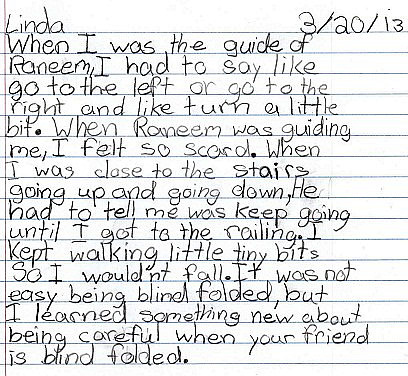 Linda 3/20/13
When I was the guide of
Raneem, I had to say like
go to the left or go to the
right and like turn a little
bit. When Raneem was guiding
me, I felt so scard. When
I was close to the stairs
going up and going down, He
had to tell me was keep going
until I got to the railing. I
kept walking little tiny bits
So I would'nt fall. It was not
easy being blind folded, but
I learned something new about
being careful when your friend
is blind folded.